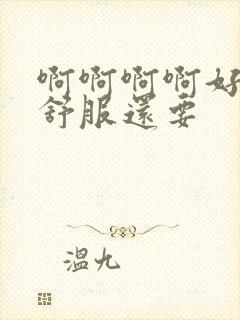 啊啊啊啊好
舒服還要
溫九